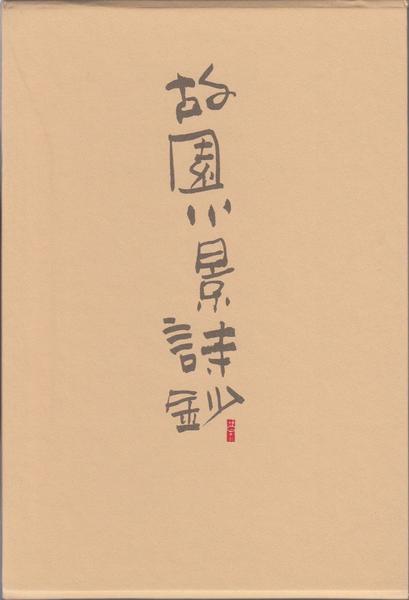 故園小景詩鈔